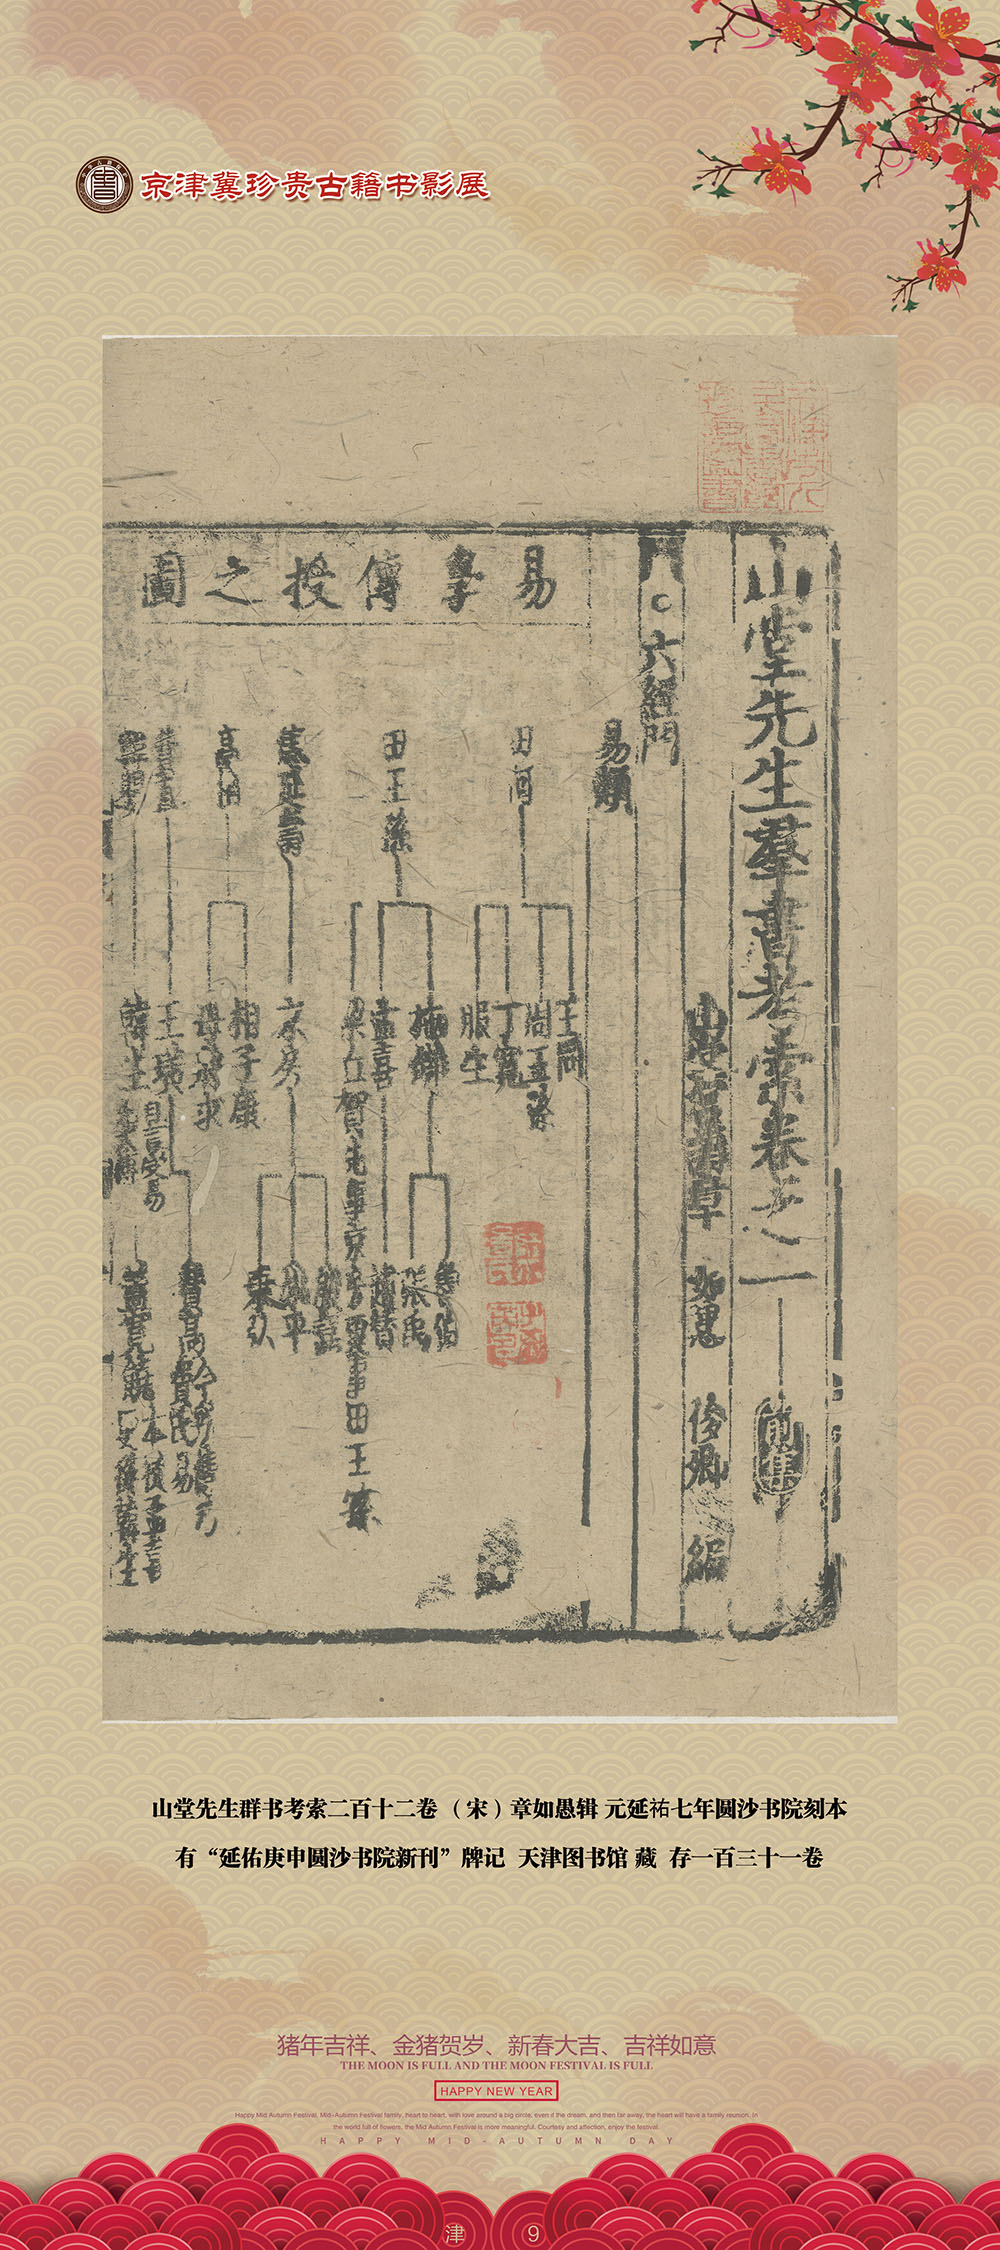 京津冀珍贵古籍书影展
山堂先生羣書考索卷之一
前集
山堂宫講章 如愚 俊卿 編
六經門
易類
易學傳授之圖
田何
田王孫
焦延壽
高相
費直
王同
周王孫
丁寬
服生
施讎
孟喜
梁丘賀先事京房更事田王孫
京房
相子康
母將永
王璜
韓生
魯伯
張禹
殷嘉
姚平
乘弘
山堂先生群书考索二百十二卷 （宋）章如愚辑 元延祐七年圆沙书院刻本
有“延佑庚申圆沙书院新刊”牌记 天津图书馆 藏 存一百三十一卷
猪年吉祥、金猪贺岁、新春大吉、吉祥如意
THE MOON IS FULL AND THE MOON FESTIVAL IS FULL
HAPPY NEW YEAR
Happy Mid Autumn Festival, Mid-Autumn Festival family, heart to heart, with love around a big circle, even if the dream, and then far away, the heart will have a family reunion. In
the world full of flowers, the Mid Autumn Festival is more meaningful. Courtesy and affection, enjoy the festival.
HAPPY MID-AUTUMN DAY
津 9